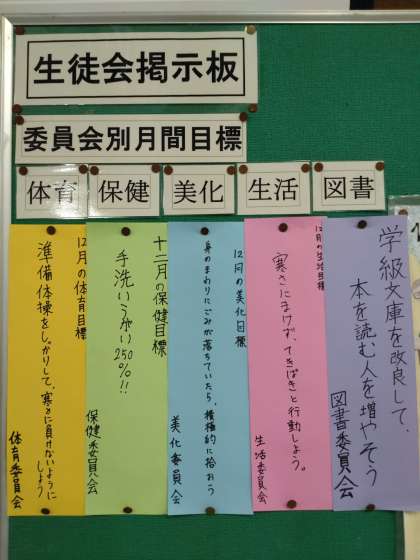 生徒会掲示板
委員会別月間目標
体育
保健
美化
生活
図書
12月の体育目標
準備体操をしっかりして、寒さに負けないように
しよう
体育委員会
十二月の保健目標
手洗いうがい250%!!
保健委員会
12月の美化目標
身のまわりにごみが落ちていたら、積極的に拾おう
美化委員会
12月の生活目標
寒さにまけず、てきぱきと行動しよう。
生活委員会
学級文庫を改良して、
本を読む人を増やそう
図書委員会